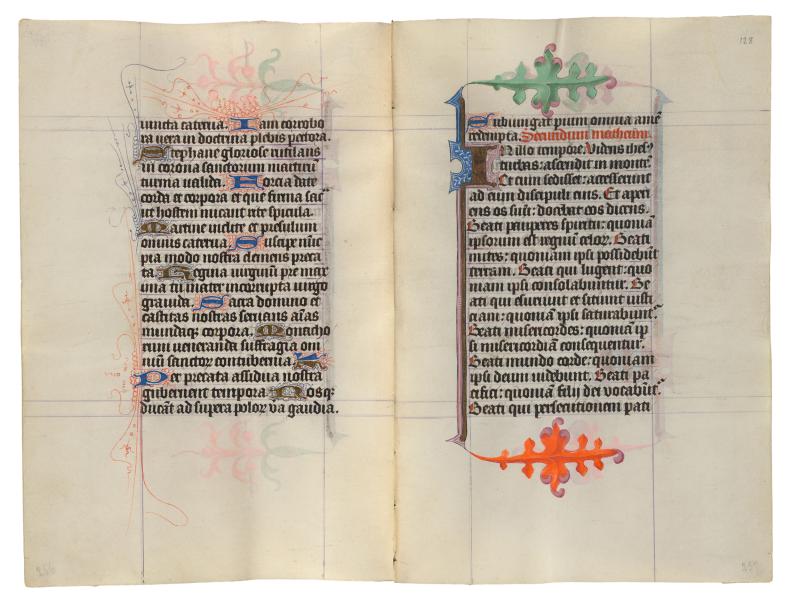 iuncta caterua. Iam corrobo
ra vera in doctrina plebis pectora.
Stephane gloriose rutilans
in corona sanctorum martirū
turma ualida. Forcia date
corda et corpora et que firma sac̄
ut hostem uincant rite spicula.
Martine inclite et presulum
omnius caterua. Suscipe nūc
pia modo nostra clemens preca
ta. Regina uirginū pre maxi
ma tu mater incorrupta uirgo
grauida. Sacra domino et
castitas nostras seruans aīas
mundaqꝫ corpora. Monacho
rum ueneranda suffragia om
niū sanctorꝝ contubernia.
et precata assidua nostra
gubernent tempora. Nosqꝫ
ducāt ad supera polorꝝ va gaudia.
128
Subiungat pium omnia amē
redempta. Secundum matheum.
In illo tempore. Videns ihesꝯ
turbas: ascendit in montē
Et cum sedisset: accesserunt
ad eum discipuli eius. Et aperi
ens os suū: docebat eos dicens.
Beati pauperes spiritu: quoniā
ipsorum est regnū celorꝝ. Beati
mites: quoniam ipsi possidebūt
terram. Beati qui lugent: quo
niam ipsi consolabuntur. Be
ati qui esuriunt et sitiunt iusti
ciam: quoniā ipsi saturabunt᷑.
Beati misericordes: quoniā ip
si misericordiā consequentur.
Beati mundo corde: quoniam
ipsi deum uidebunt. Beati pa
cifici: quoniā filij dei vocabūt᷑.
Beati qui persecutionem pati
256
257